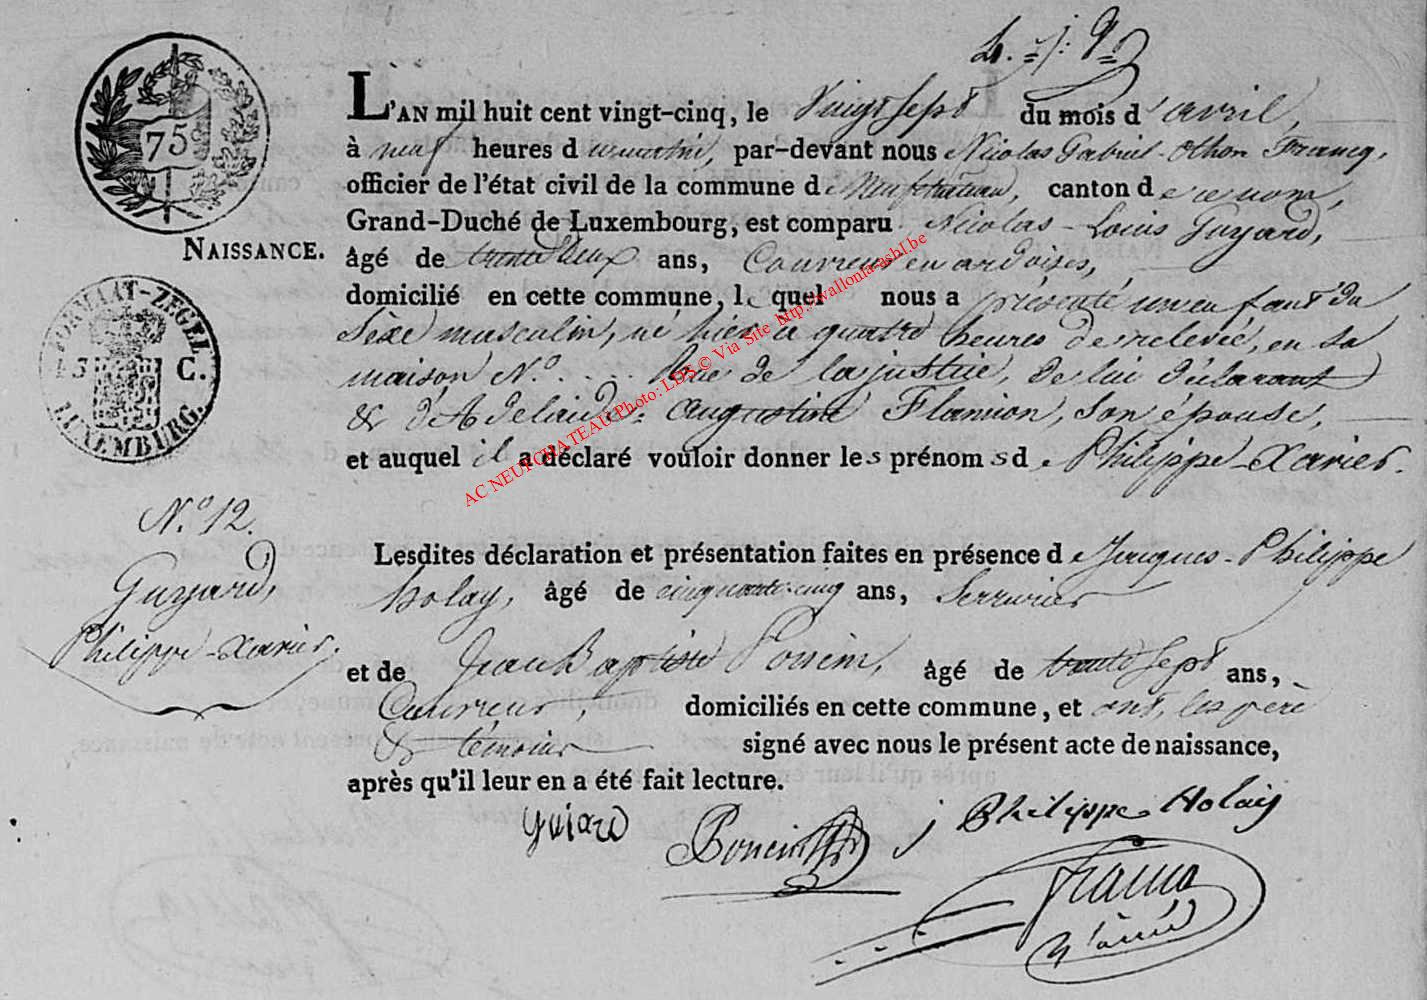 75 c
NAISSANCE.
FORMAAT-ZEGEL
C.
LUXEMBURG.
L'AN mil huit cent vingt-cinq, le Vingt Sept du mois d'avril,
à neuf heures du matin, par-devant nous Nicolas Gabriel-Othon Francq,
officier de l'état civil de la commune de Neufchateau, canton de ce nom,
Grand-Duché de Luxembourg, est comparu Nicolas-Louis Guyard,
âgé de trente deux ans, Couvreur en ardoises,
domicilié en cette commune, lequel nous a présenté un enfant du
Sèxe masculin, né hier à quatre heures de relevée, en sa
maison N.º .... Rue de la justice, de lui déclarant
& d'Adelaide-Augustine Flamion, son épouse,
et auquel il a déclaré vouloir donner les prénoms de Philippe-Xavier.
AC NEUFCHATEAU Photo: LDS © Via Site http://wallonia-asbl.be
N.º 12.
Guyard,
Philippe-Xavier.
Lesdites déclaration et présentation faites en présence de Jacques-Philippe
holay, âgé de cinquante-cinq ans, Serrurier
et de Jean Baptiste Poncin, âgé de trente Sept ans,
Couvreur, domiciliés en cette commune, et ont, les père
& témoins signé avec nous le présent acte de naissance,
après qu'il leur en a été fait lecture.
guiard
Poncin
j Philippe Holaÿ
Francq